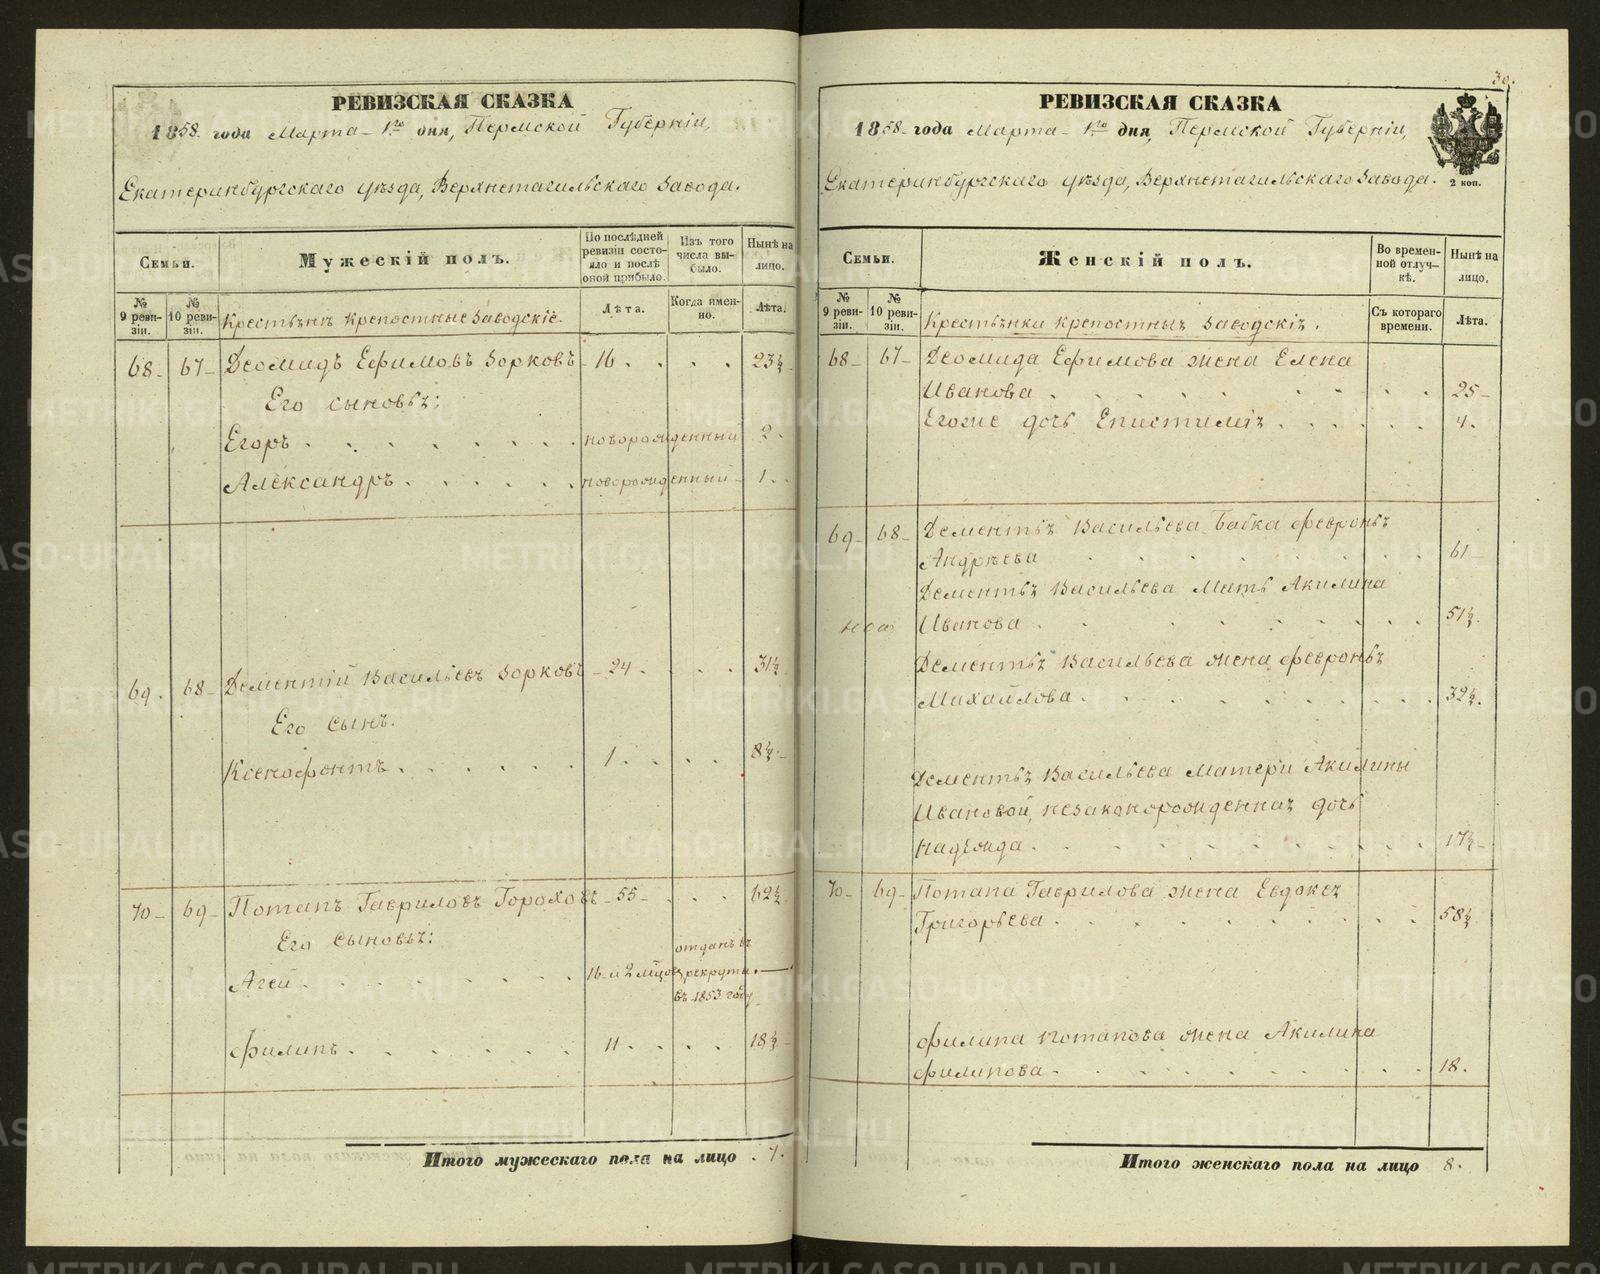 РЕВИЗСКАЯ СКАЗКА
1858 года Марта 1го дня, Пермской Губерніи,
Екатеринбургскаго уѣзда, Верхнетагильскаго Завода.
Семьи.
Мужескій полъ.
По послѣдней ревизіи состояло и послѣ оной прибыло.
Изъ того числа выбыло.
Нынѣ на лицо.
№ 9 ревизіи.
№ 10 ревизіи.
Крестьяне крепостные заводскіе.
Лѣта.
Когда именно.
Лѣта.
68 67 Деомидъ Ефимовъ Зорковъ 16 . . . . 23½
Его сыновья:
Егоръ . . . . . . новорожденный 2.
Александръ . . . . . новорожденный 1.
69. 68 Дементій Васильевъ Зорковъ 24 . . . 31½
Его сынъ.
Ксенофонтъ . . . . . 1 . . . . 8½
70 69 Потапъ Гавриловъ Гороховъ 55 . . . 62½
Его сыновья:
Агей . . . . . . 16 и 2 мѣсец отданъ въ рекруты въ 1853 году —
Филипъ . . . . . . 11 . . . . 18½
Итого мужескаго пола на лицо . 7.
30.
РЕВИЗСКАЯ СКАЗКА
1858 года Марта 1го дня, Пермской Губерніи,
Екатеринбургскаго уѣзда, Верхнетагильскаго Завода.
2 коп.
Семьи.
Женскій полъ.
Во временной отлучкѣ.
Нынѣ на лицо.
№ 9 ревизіи.
№ 10 ревизіи.
Крестьянки крепостныя заводскія.
Съ котораго времени.
Лѣта.
68 67 Деомида Ефимова жена Елена
Иванова . . . . . . 25
Егоже дочь Епистимія . . . . . 4.
69 68 Дементья Васильева Бабка Февронья
Андрѣева . . . . . . 61
Дементья Васильева Мать Акилина
Иванова . . . . . . 51½
Дементья Васильева жена Февронья
Михайлова . . . . . . 32½.
Дементья Васильева Матери Акилины
Ивановой, незаконорожденная дочь
Надежда . . . . . . 17½
70 69 Потапа Гаврилова жена Евдокея
Григорьева . . . . . . 58½
Филипа Потапова жена Акилина
Филипова . . . . . . 18.
Итого женскаго пола на лицо 8.
METRIKI.GASO-URAL.RU